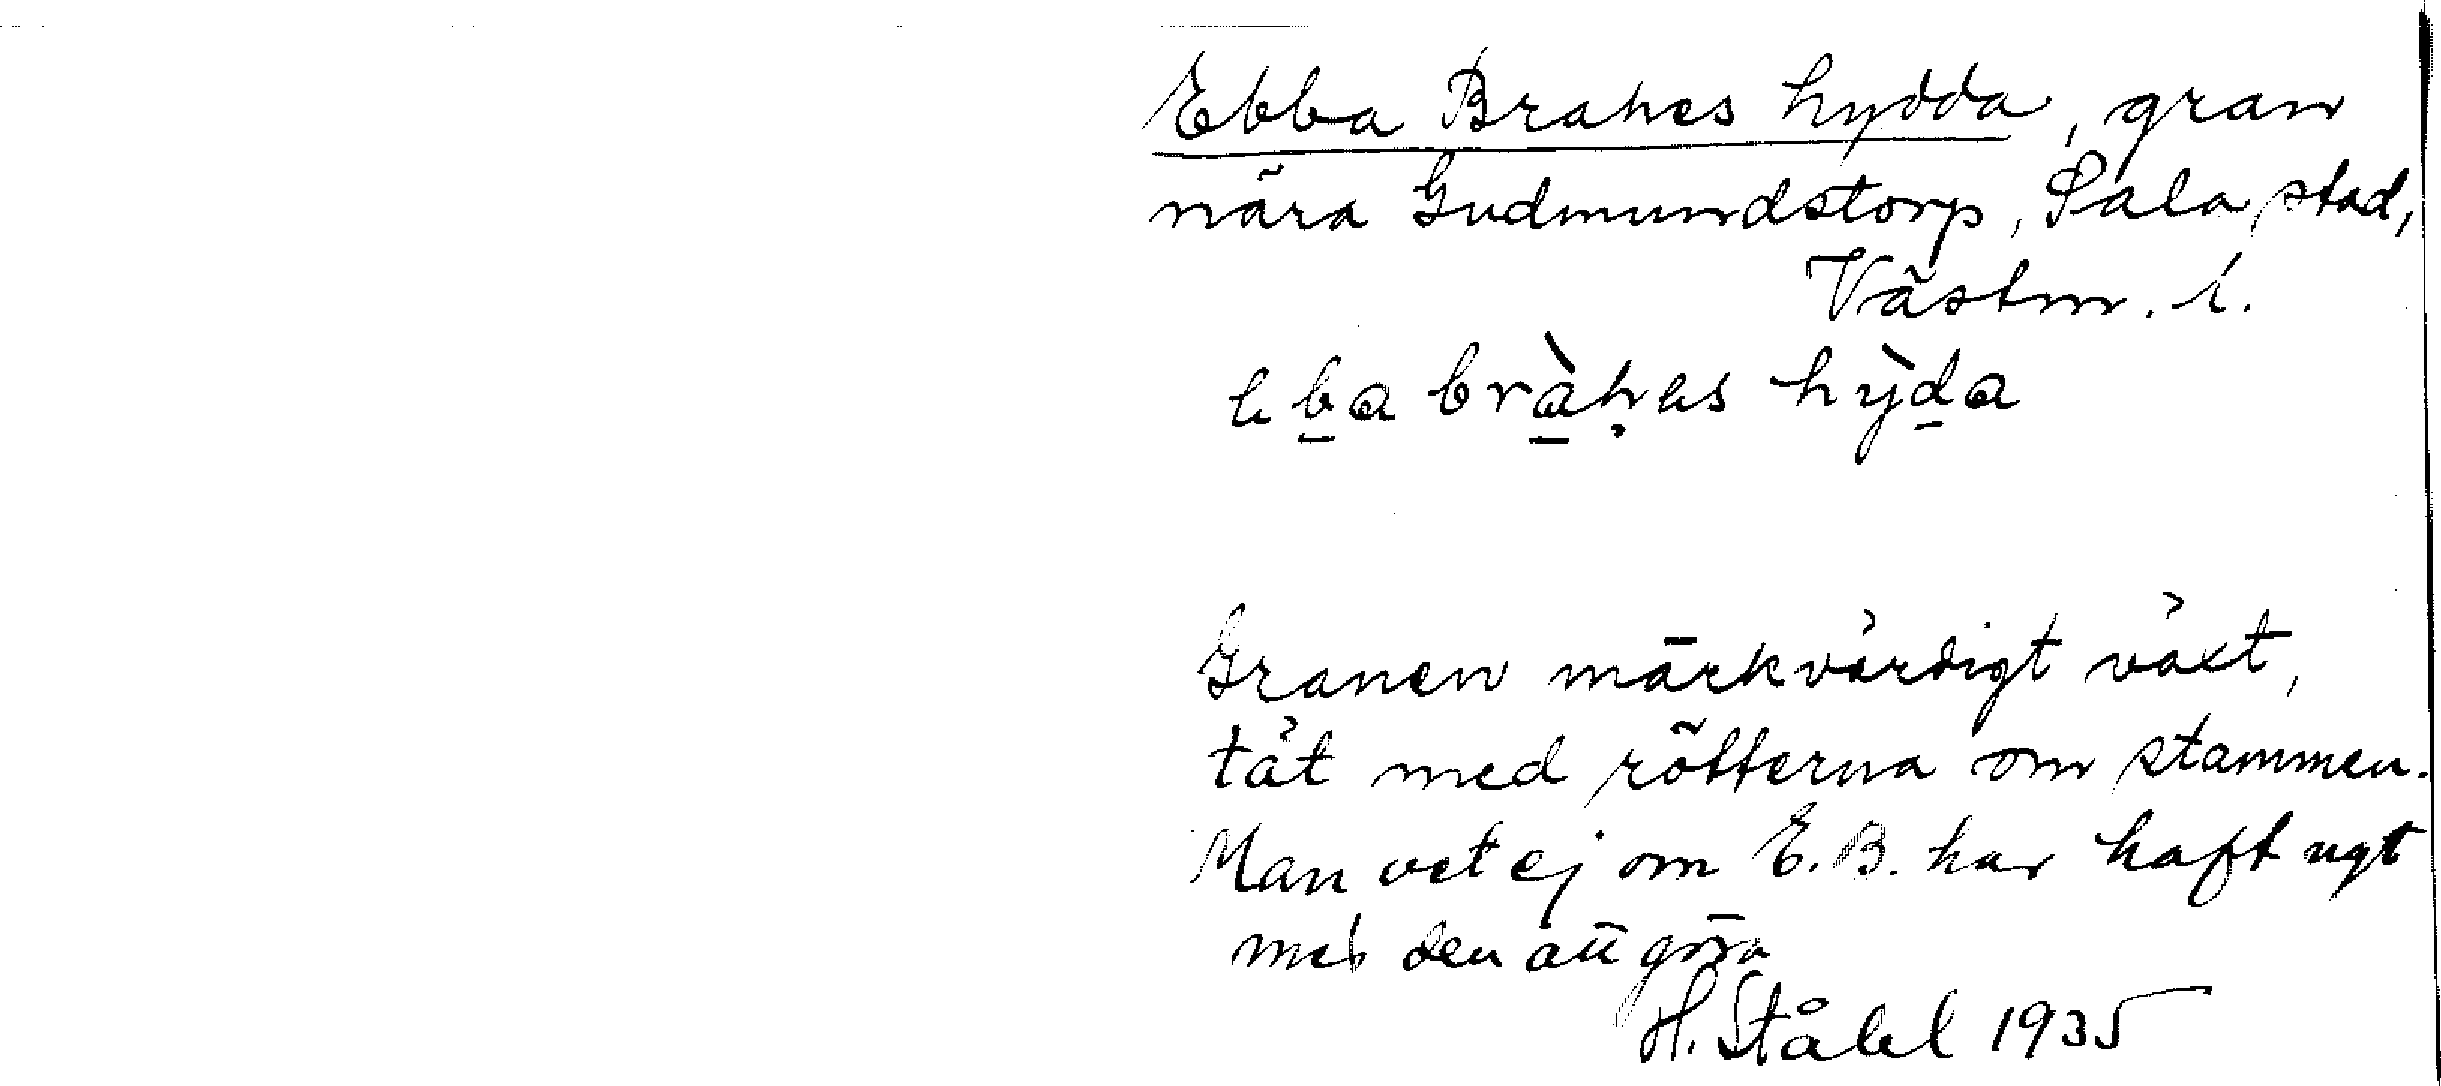 Ebba Brahes hydda, gran
nära Gudmundstorp, Sala stad,
Västm. l.
eba bràhes hỳda
Granen märkvärdigt växt,
tät med rötterna om stammen.
Man vet ej om E.B. har haft ngt
med den att göra
H. Ståhl 1935